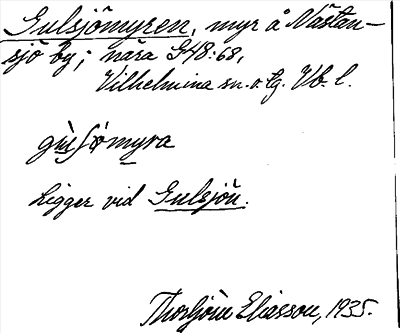 Gulsjömyren, myr å Nästan-
sjö by; nära G48:68,
Vilhelmina sn. o. tg. Vb. l.
Ligger vid Gulsjön.
Thorbjörn Eliasson, 1935.